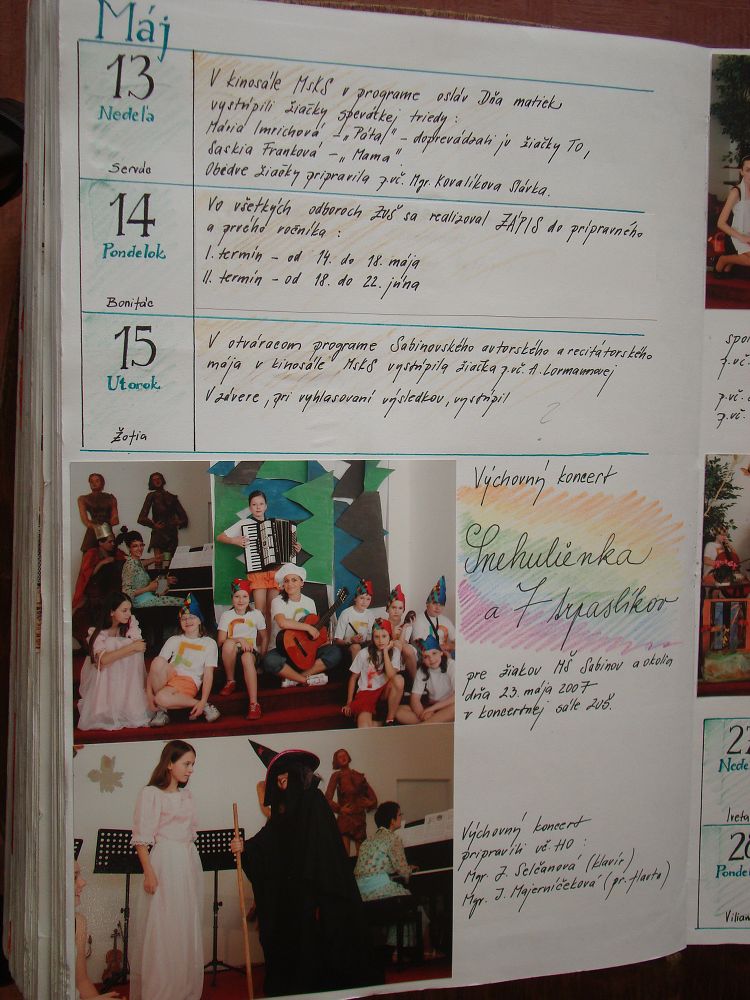 Máj
13
Nedeľa
Servác
V kinosále MsKS v programe osláv Dňa matiek
vystúpili žiačky speváckej triedy:
Mária Imrichová – „Pátal" – doprevádzali ju žiačky TO,
Saskia Franková – „Mama".
Obidve žiačky pripravila p.uč. Mgr. Kovalíkova Slávka.
14
Pondelok
Bonifác
Vo všetkých odboroch ZUŠ sa realizoval ZÁPIS do prípravného
a prvého ročníka :
I. termín – od 14. do 18. mája
II. termín – od 18. do 22. júna
15
Utorok
Žofia
V otváracom programe Sabinovského autorského a recitátorského
mája v kinosále MsKS vystúpila žiačka p.uč. A. Lormannovej
V závere, pri vyhlasovaní výsledkov, vystúpil
?
Výchovný koncert
Snehulienka
a 7 trpaslíkov
pre žiakov MŠ Sabinov a okolia
dňa 23. mája 2007
v koncertnej sále ZUŠ.
Výchovný koncert
pripravili uč. HO :
Mgr. J. Selčanová (klavír)
Mgr. J. Majerníčeková (pr. flauta)
spo
p.uč.
p.uč.
p.uč.
27
Nede
Iveta
28
Ponde
Vilia